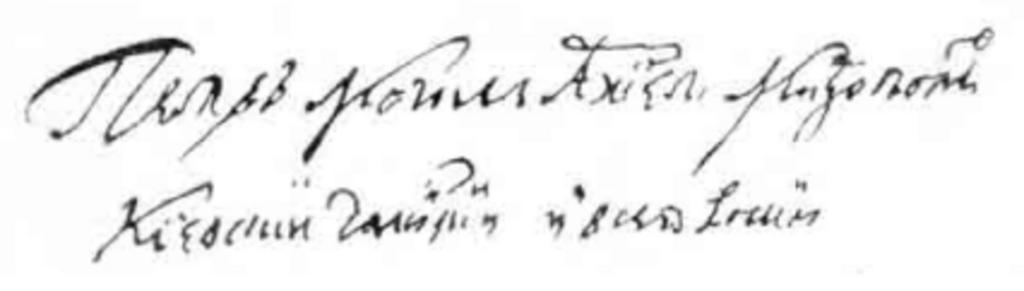 Петръ Могила Архіеп: Митрополи
Кіевскии Галицкии и всея Россіи